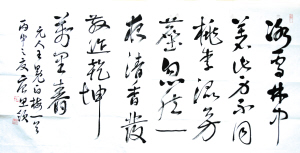 冰雪林中
著此身不同
桃李混芳
塵忽然一
夜清香發
散作乾坤
萬里春
元人王冕白梅一首